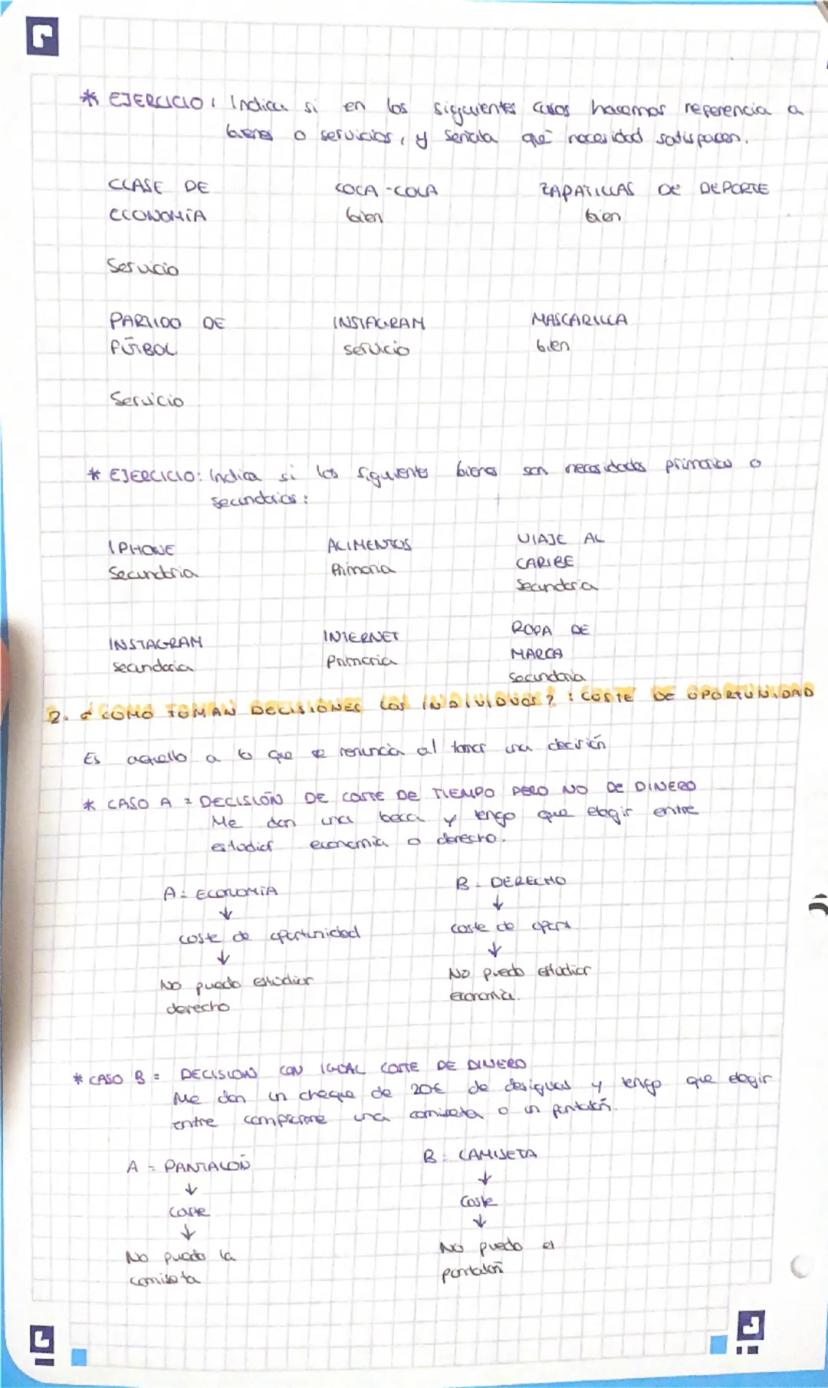 * EJERCICIO: Indica si en los siguientes casos hacemos referencia a
bienes o servicios, y señala qué necesidad satisfacen.
CLASE DE
ECONOMÍA
Servicio
COCA-COLA
bien
ZAPATILLAS DE DEPORTE
bien
PARTIDO DE
FÚTBOL
Servicio
INSTAGRAM
servicio
MASCARILLA
bien
* EJERCICIO: Indica si los siguientes bienes son necesidades primarias o
secundarias:
IPHONE
Secundaria
ALIMENTOS
Primaria
VIAJE AL
CARIBE
Secundaria
INSTAGRAM
secundaria
INTERNET
Primaria
ROPA DE
MARCA
Secundaria
2. ¿COMO TOMAN DECISIONES LOS INDIVIDUOS?: COSTE DE OPORTUNIDAD
Es aquello a lo que se renuncia al tomar una decisión
* CASO A = DECISIÓN DE COSTE DE TIEMPO PERO NO DE DINERO
Me dan una beca y tengo que elegir entre
estudiar economia o derecho.
A = ECONOMÍA
↓
coste de oportunidad
↓
No puedo estudiar
derecho
B = DERECHO
↓
coste de oport
↓
No puedo estudiar
economia.
* CASO B = DECISION CON IGUAL COSTE DE DINERO
Me dan un cheque de 20€ de desigual y tengo que elegir
entre comprarme una camiseta o un pantalón.
A = PANTALÓN
↓
coste
↓
No puedo la
camiseta
B = CAMISETA
↓
Coste
↓
No puedo el
pantalón